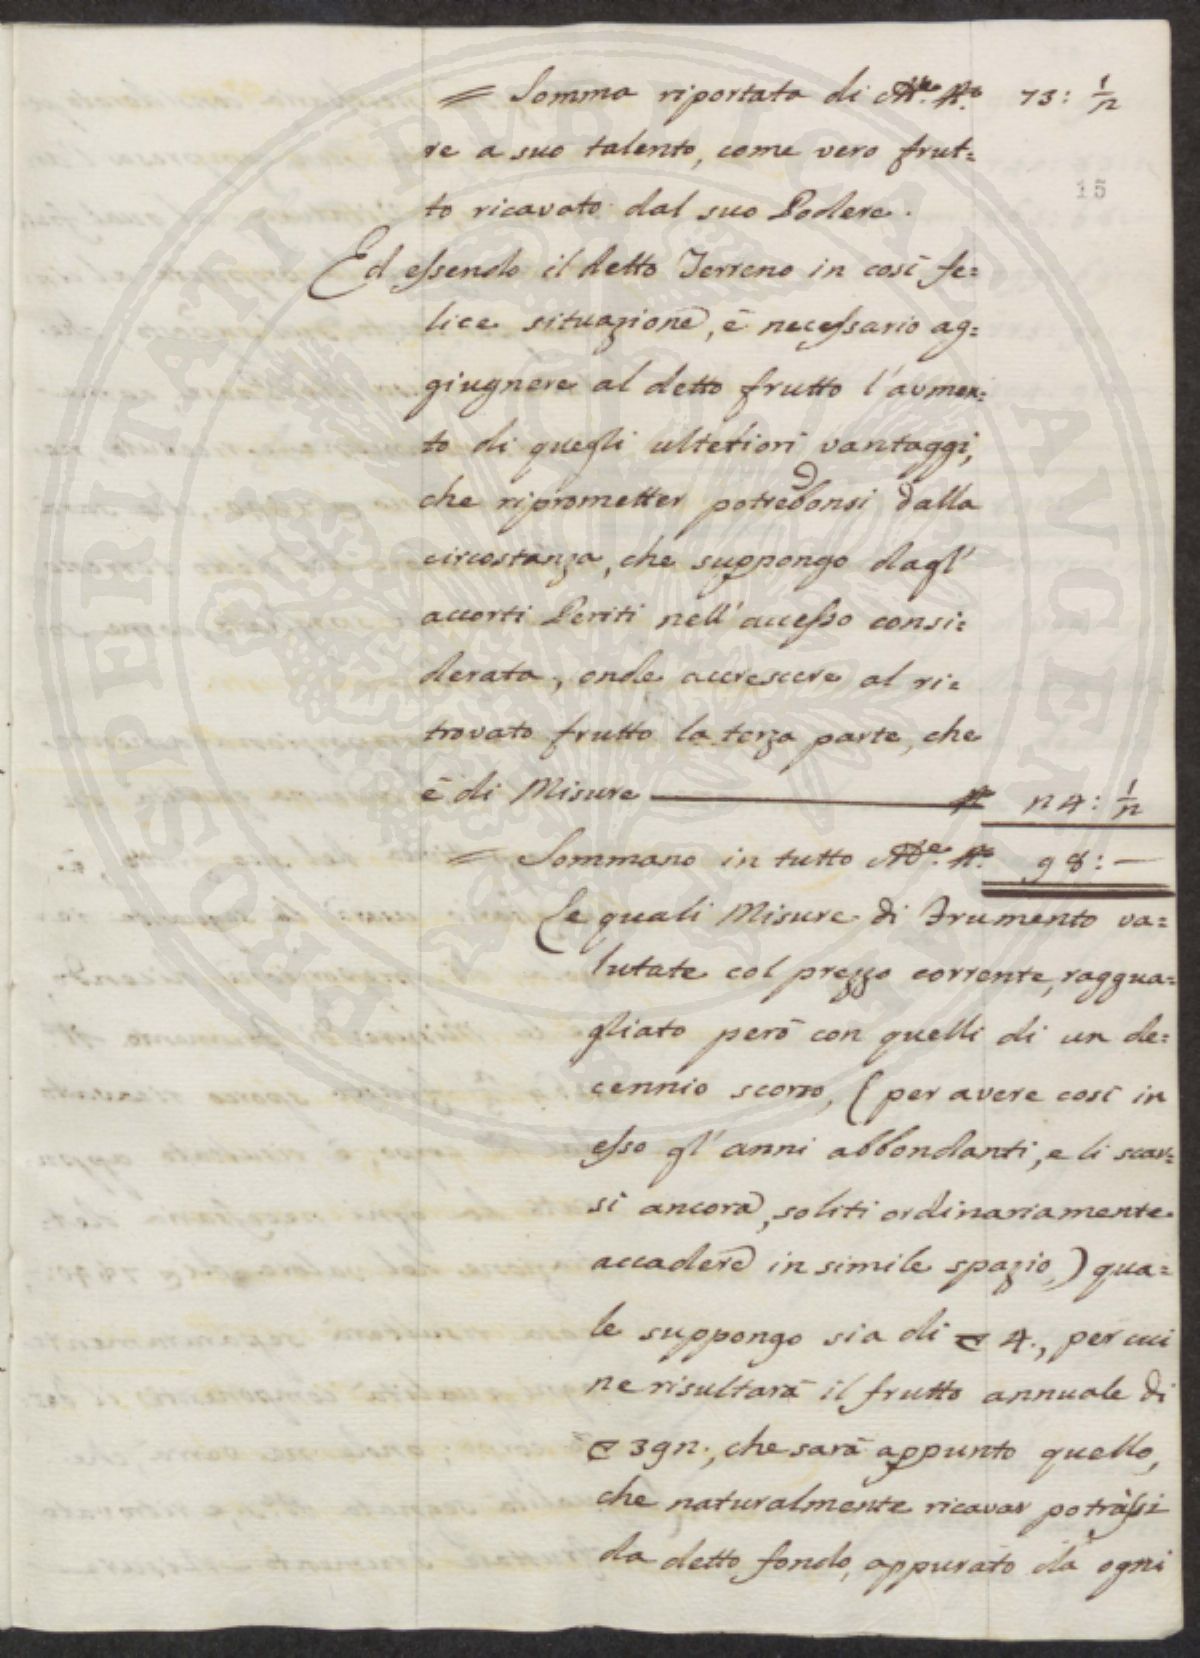 = Somma riportata di M.re N.o 73: 1/2
re a suo talento, come vero frut=
15
to ricavato dal suo Podere.
Ed essendo il detto Terreno in così fe=
lice situazione, è necessario ag=
giugnere al detto frutto l'aumen=
to di quegli ulteriori vantaggi,
che riprometter potrebbonsi dalla
circostanza, che suppongo dagl'
accorti Periti nell'accesso consi=
derata, onde accrescere al ri=
trovato frutto la terza parte, che
è di Misure — N.o 24: 1/2
= Sommano in tutto M.re N.o 98: —
Le quali Misure di Frumento va=
lutate col prezzo corrente, raggua=
gliato però con quelli di un de=
cennio scorso, (per avere così in
esso gl'anni abbondanti, e li scar=
si ancora, soliti ordinariamente
accadere in simile spazio,) qua=
le suppongo sia di 4., per cui
ne risultarà il frutto annuale di
392., che sarà appunto quello,
che naturalmente ricavar potrassi
da detto fondo, appurato da ogni
PROSPERITATI PVBLICAE AVGENDAE